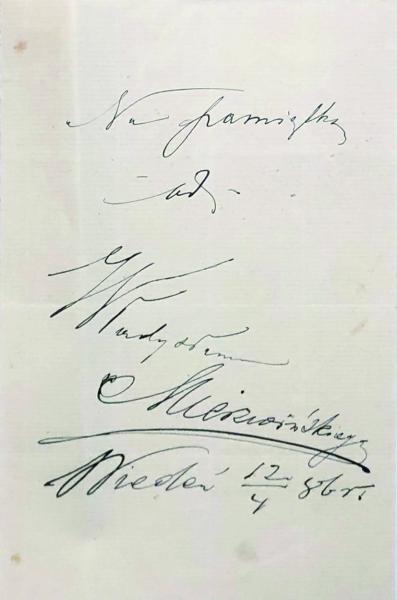 Na pamiątkę
od
Władysława
Mierzwińskiego
Wiedeń 12/4 86 r.